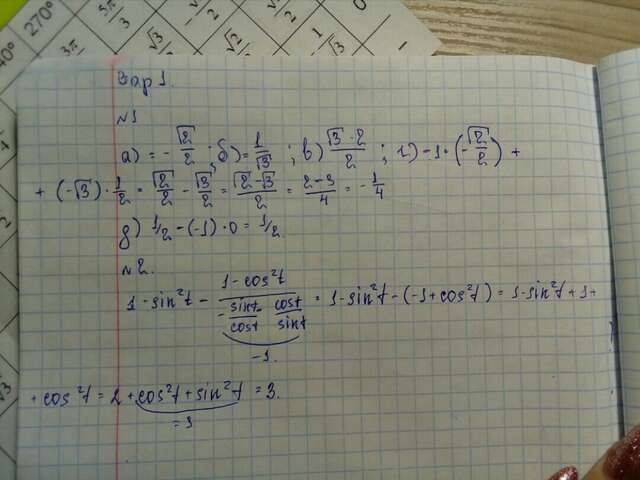 40° 270° 5π/3 √3/2 -√2/2 0
3π √3/2 √2/2 -1/√3 -
Вар 1.
№1
а) = -√2/2 ; б) = 1/√3 ; в) √3-2/2 ; г) -1·(-√2/2) +
+ (-√3)·1/2 = √2/2 - √3/2 = √2-√3/2 = 2-3/4 = -1/4
д) 1/2 - (-1)·0 = 1/2.
№2.
1-sin²t - 1-cos²t / -sint/cost · cost/sint = 1-sin²t-(-1+cos²t) = 1-sin²t+1+
-1.
+cos²t = 2+cos²t+sin²t = 3.
=1
√3